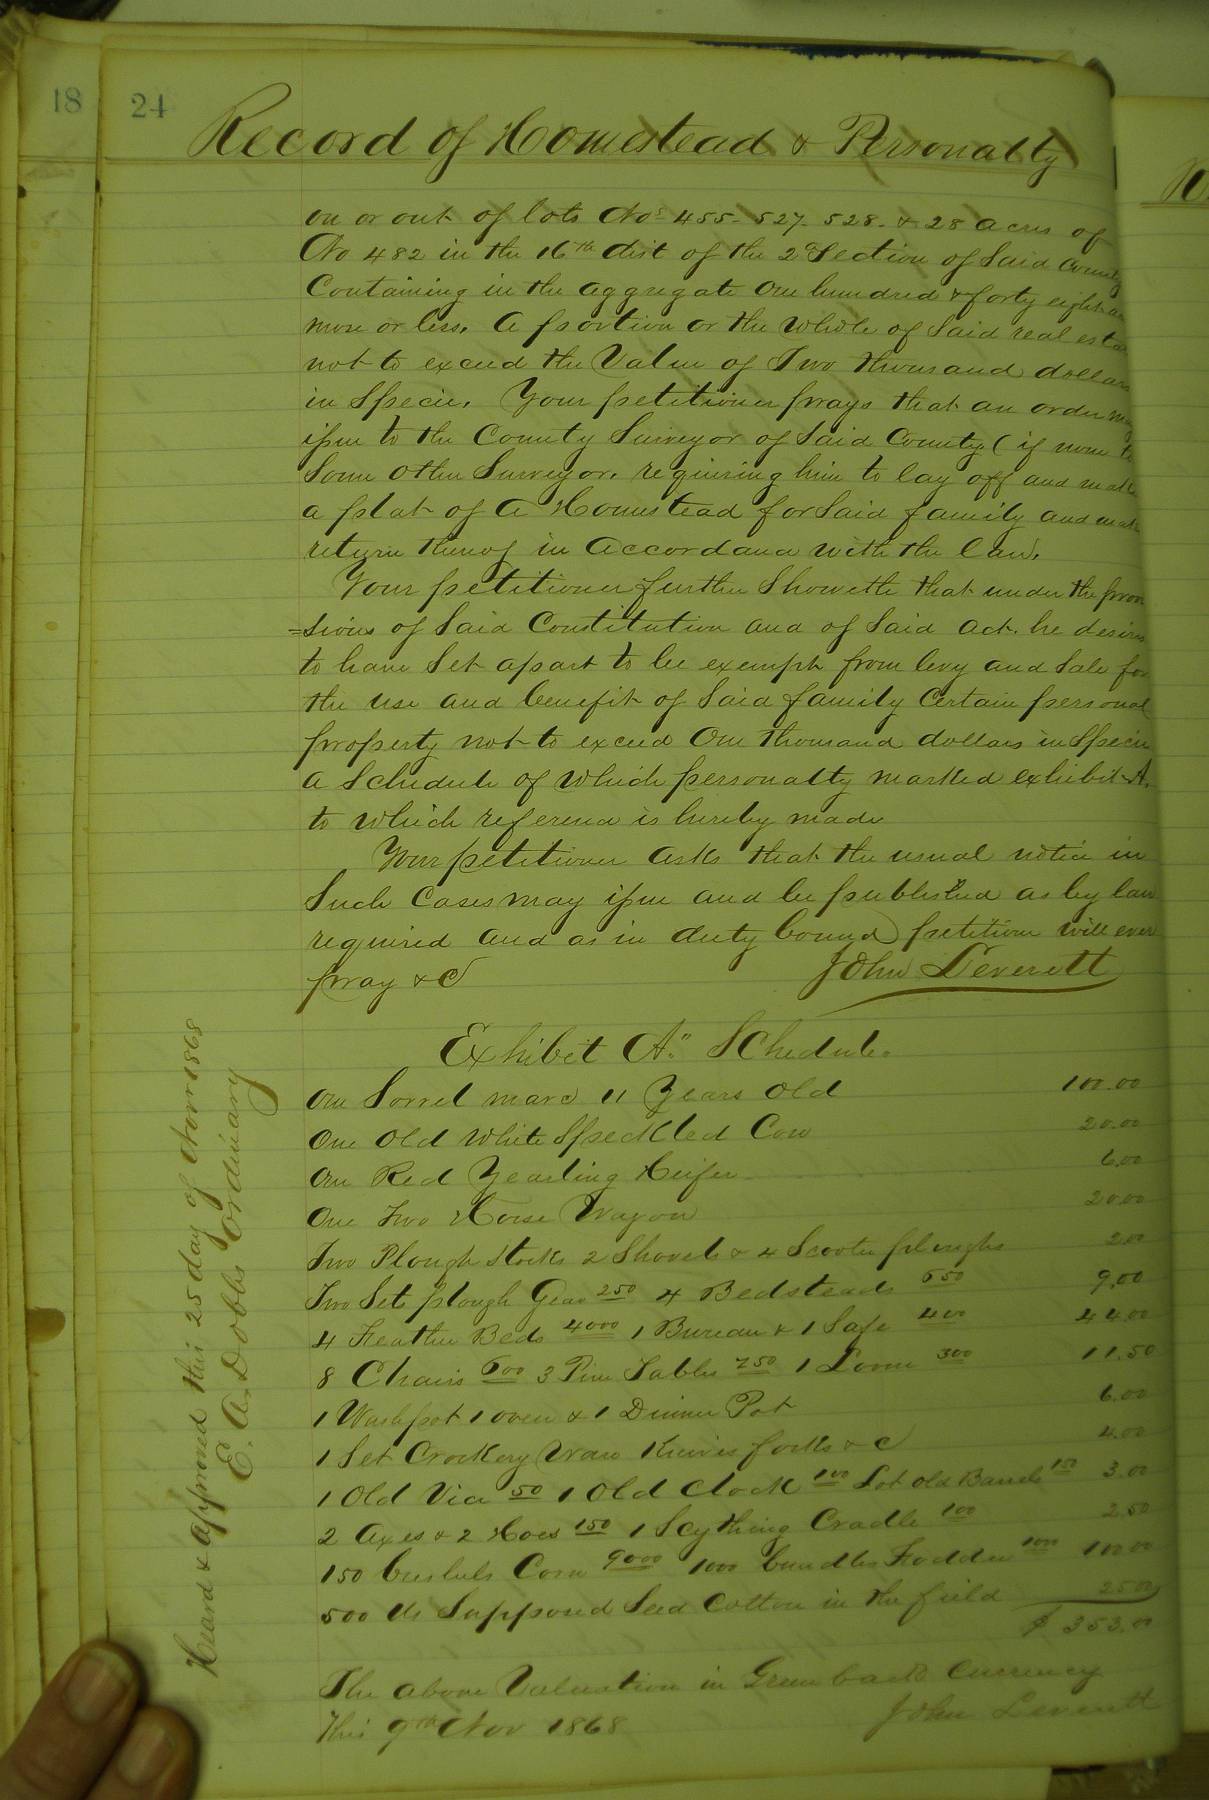 18
24
Record of Homestead & Personalty
on or out of lots Nos 455- 527- 528- & 28 acres of
No 482 in the 16th dist of the 2d Section of Said County
Containing in the aggregate One hundred & forty eight
more or less. A portion or the whole of Said real esta
not to exceed the Value of Two thousand dollars
in Specie. Your petitioner prays that an order may
issue to the County Surveyor of Said County (if none to
Some other Surveyor, requiring him to lay off and make
a plat of a Homestead for Said family and make
return thereof in accordance with the law.
Your petitioner further Showeth that under the provi
=sions of Said Constitution and of Said act. he desires
to have Set apart to be exempt from levy and Sale for
the use and benefit of Said family Certain personal
property not to exceed One thousand dollars in Specie
a Schedule of which personalty marked exhibit A.
to which reference is hereby made
Your petitioner asks that the usual notice in
Such Cases may issue and be published as by law
required and as in duty bound petitioner will ever
pray &C John Leverett
Exhibit A." Schedule.
One Sorrel mare 11 Years old 100.00
One old White Speckled Cow 20.00
One Red Yearling Heifer 6.00
One Two Horse Wagon 20.00
Two Plough Stocks 2 Shovels & 4 Scooter ploughs 2.00
Two Sets plough Gear 250 4 Bedsteads 650 9.00
4 Feather Beds 4000 1 Bureau & 1 Safe 400 44.00
8 Chairs 600 3 Pine Tables 250 1 Loom 300 11.50
1 Washpot 1 oven & 1 Dinner Pot 6.00
1 Set Crockery Ware Knives forks & C 4.00
1 Old Vice 50 1 Old Clock 100 Lot old Barrels 150 3.00
2 Axes & 2 Hoes 150 1 Scything Cradle 100 2.50
150 bushels Corn 9000 1000 bundles Fodder 1000 100.00
500 lbs Supposed Seed Cotton in the field 25.00
$ 353.00
The above Valuation in Green back Currency
This 9th Nov 1868 John Leverett
Heard & approved this 25 day of Novr 1868
E. A. Dobbs Ordinary